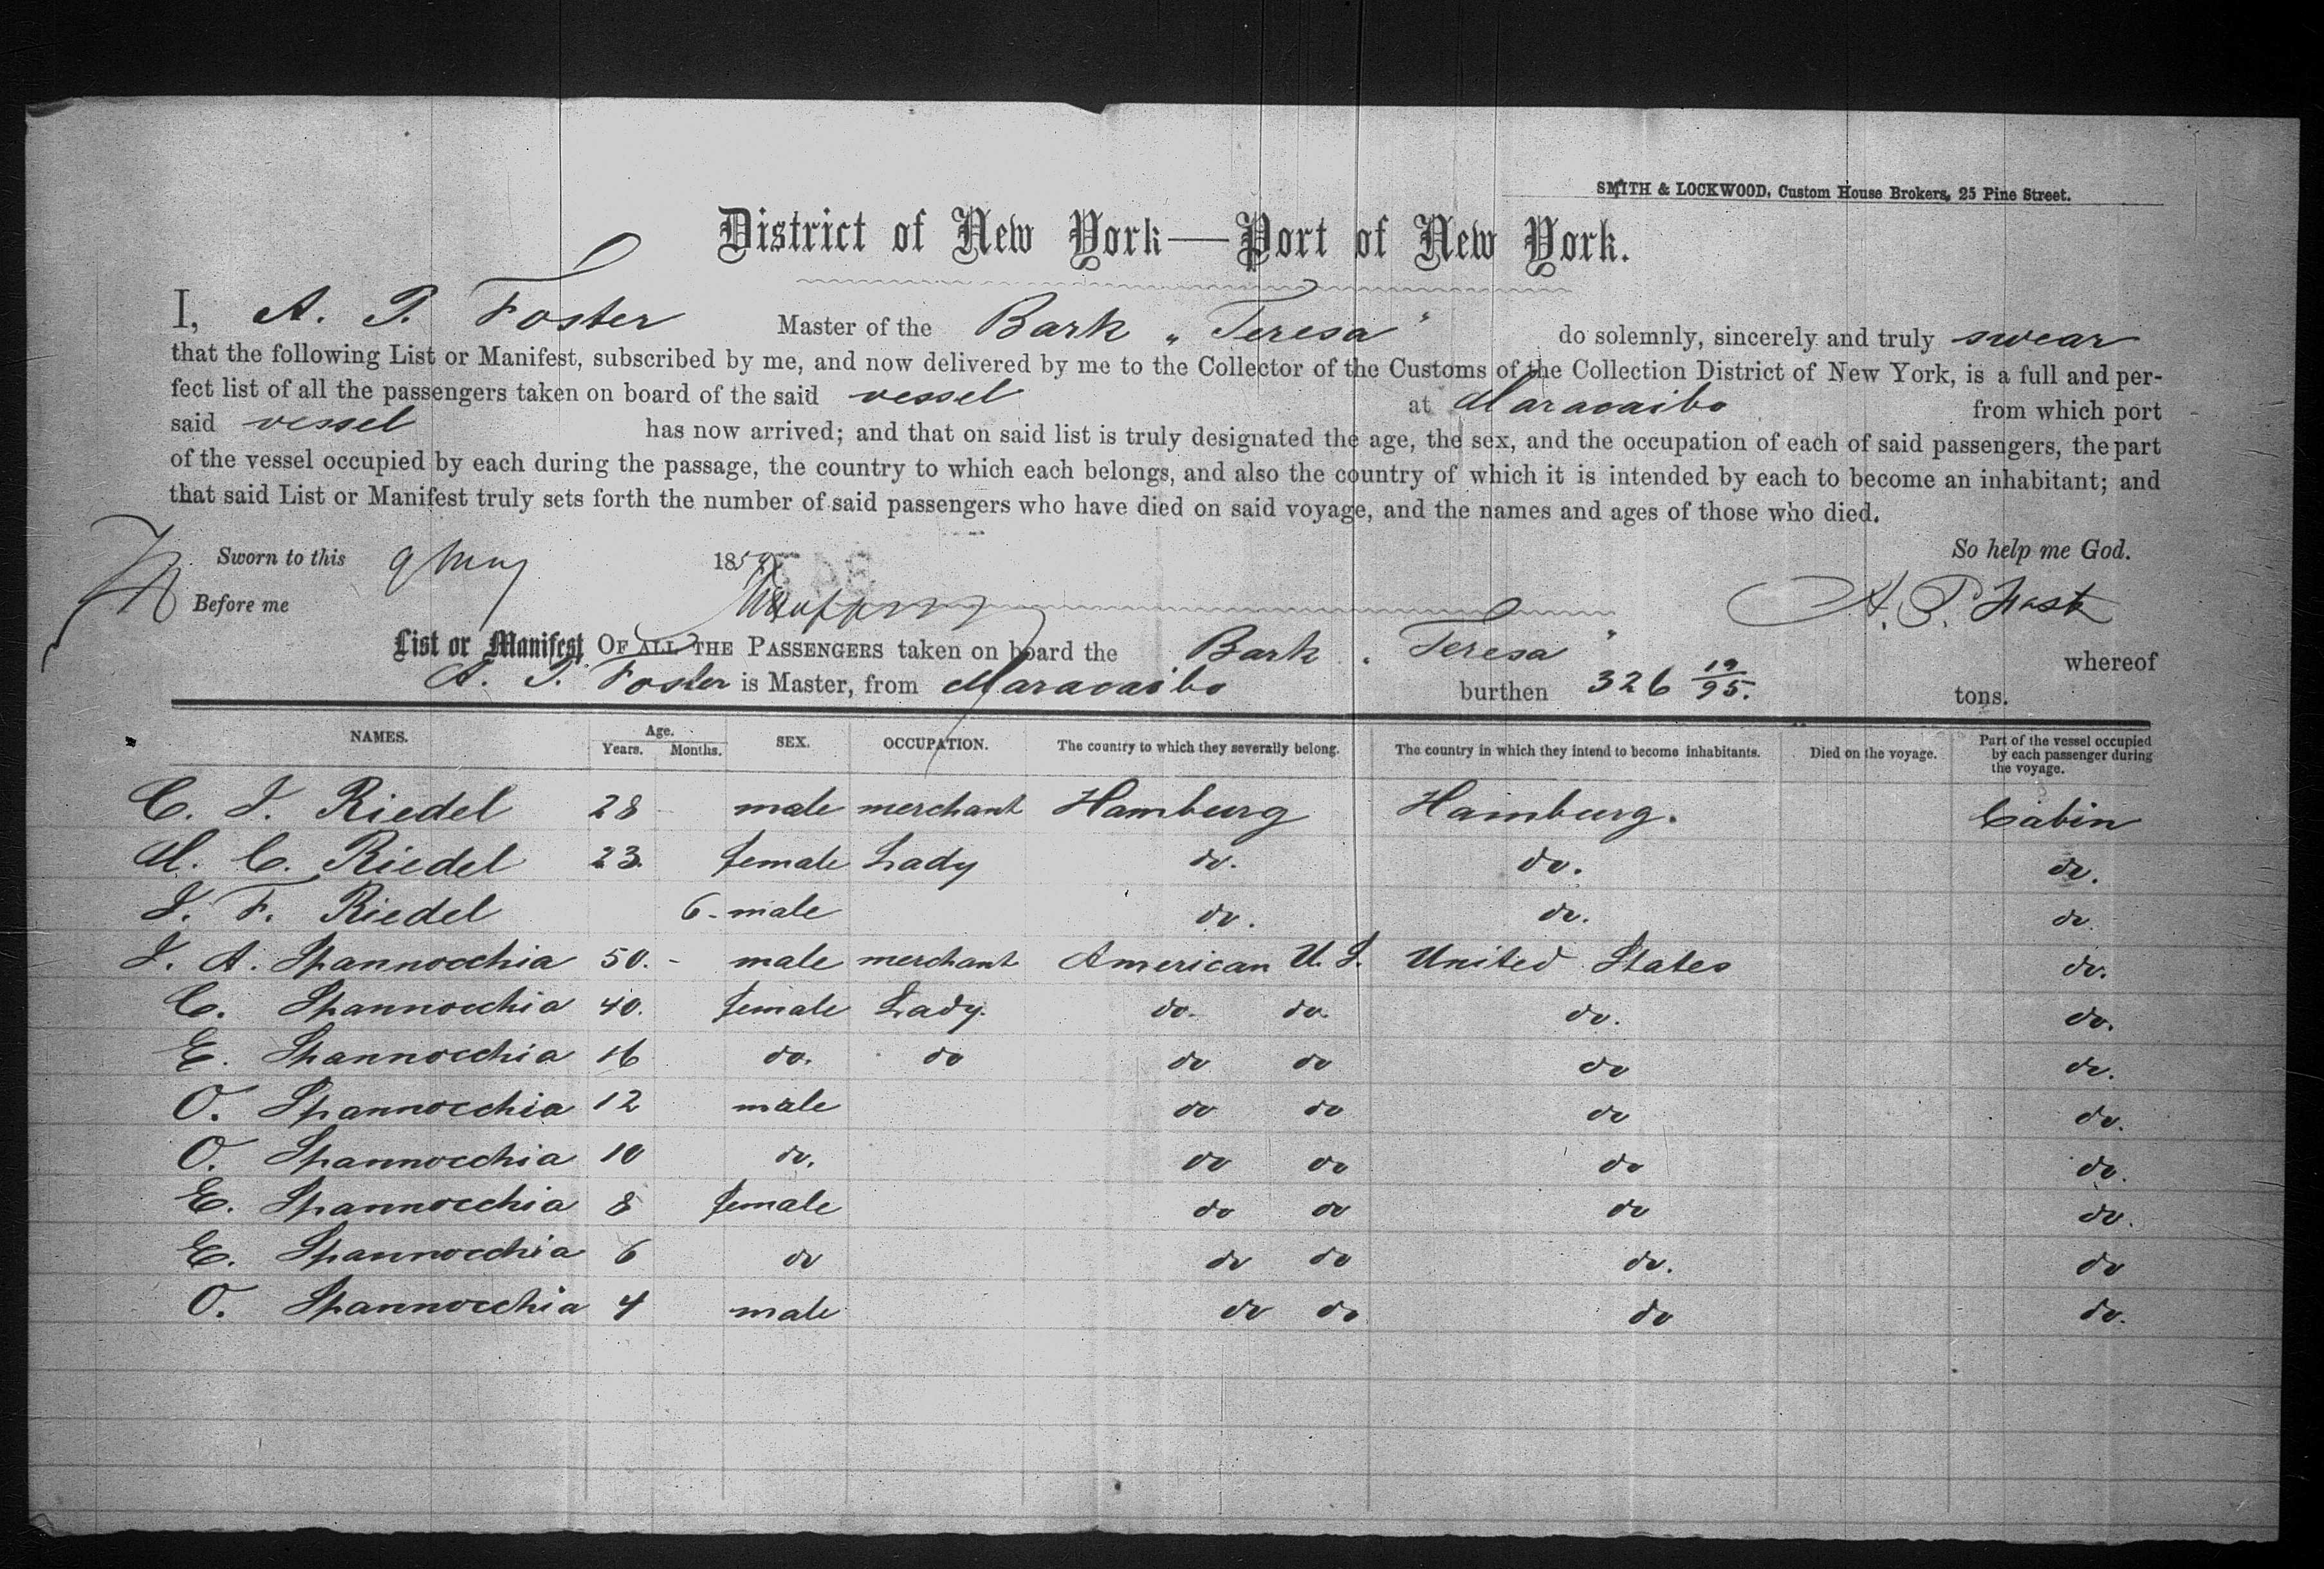 SMITH & LOCKWOOD, Custom House Brokers, 25 Pine Street.
District of New York—Port of New York.
I, A. P. Foster Master of the Bark "Teresa" do solemnly, sincerely and truly swear
that the following List or Manifest, subscribed by me, and now delivered by me to the Collector of the Customs of the Collection District of New York, is a full and per-
fect list of all the passengers taken on board of the said vessel at Maracaibo from which port
said vessel has now arrived; and that on said list is truly designated the age, the sex, and the occupation of each of said passengers, the part
of the vessel occupied by each during the passage, the country to which each belongs, and also the country of which it is intended by each to become an inhabitant; and
that said List or Manifest truly sets forth the number of said passengers who have died on said voyage, and the names and ages of those who died.
Sworn to this 9 May 185 So help me God.
Before me A. P. Foster
List or Manifest OF ALL THE PASSENGERS taken on board the Bark "Teresa" whereof
A. P. Foster is Master, from Maracaibo burthen 326 19/95. tons.
NAMES. Age. Years. Months. SEX. OCCUPATION. The country to which they severally belong. The country in which they intend to become inhabitants. Died on the voyage. Part of the vessel occupied by each passenger during the voyage.
C. J. Riedel 28 male merchant Hamburg Hamburg. Cabin
M. C. Riedel 23. female Lady do. do. do.
J. F. Riedel 6 - male do. do. do.
J. A. Spannocchia 50. - male merchant American U. S. United States do.
C. Spannocchia 40. female Lady. do. do. do. do.
E. Spannocchia 16 do. do do do do do.
O. Spannocchia 12 male do do do do.
O. Spannocchia 10 do. do do do do.
E. Spannocchia 8 female do do do do.
E. Spannocchia 6 do do do do. do
O. Spannocchia 4 male do do do do.